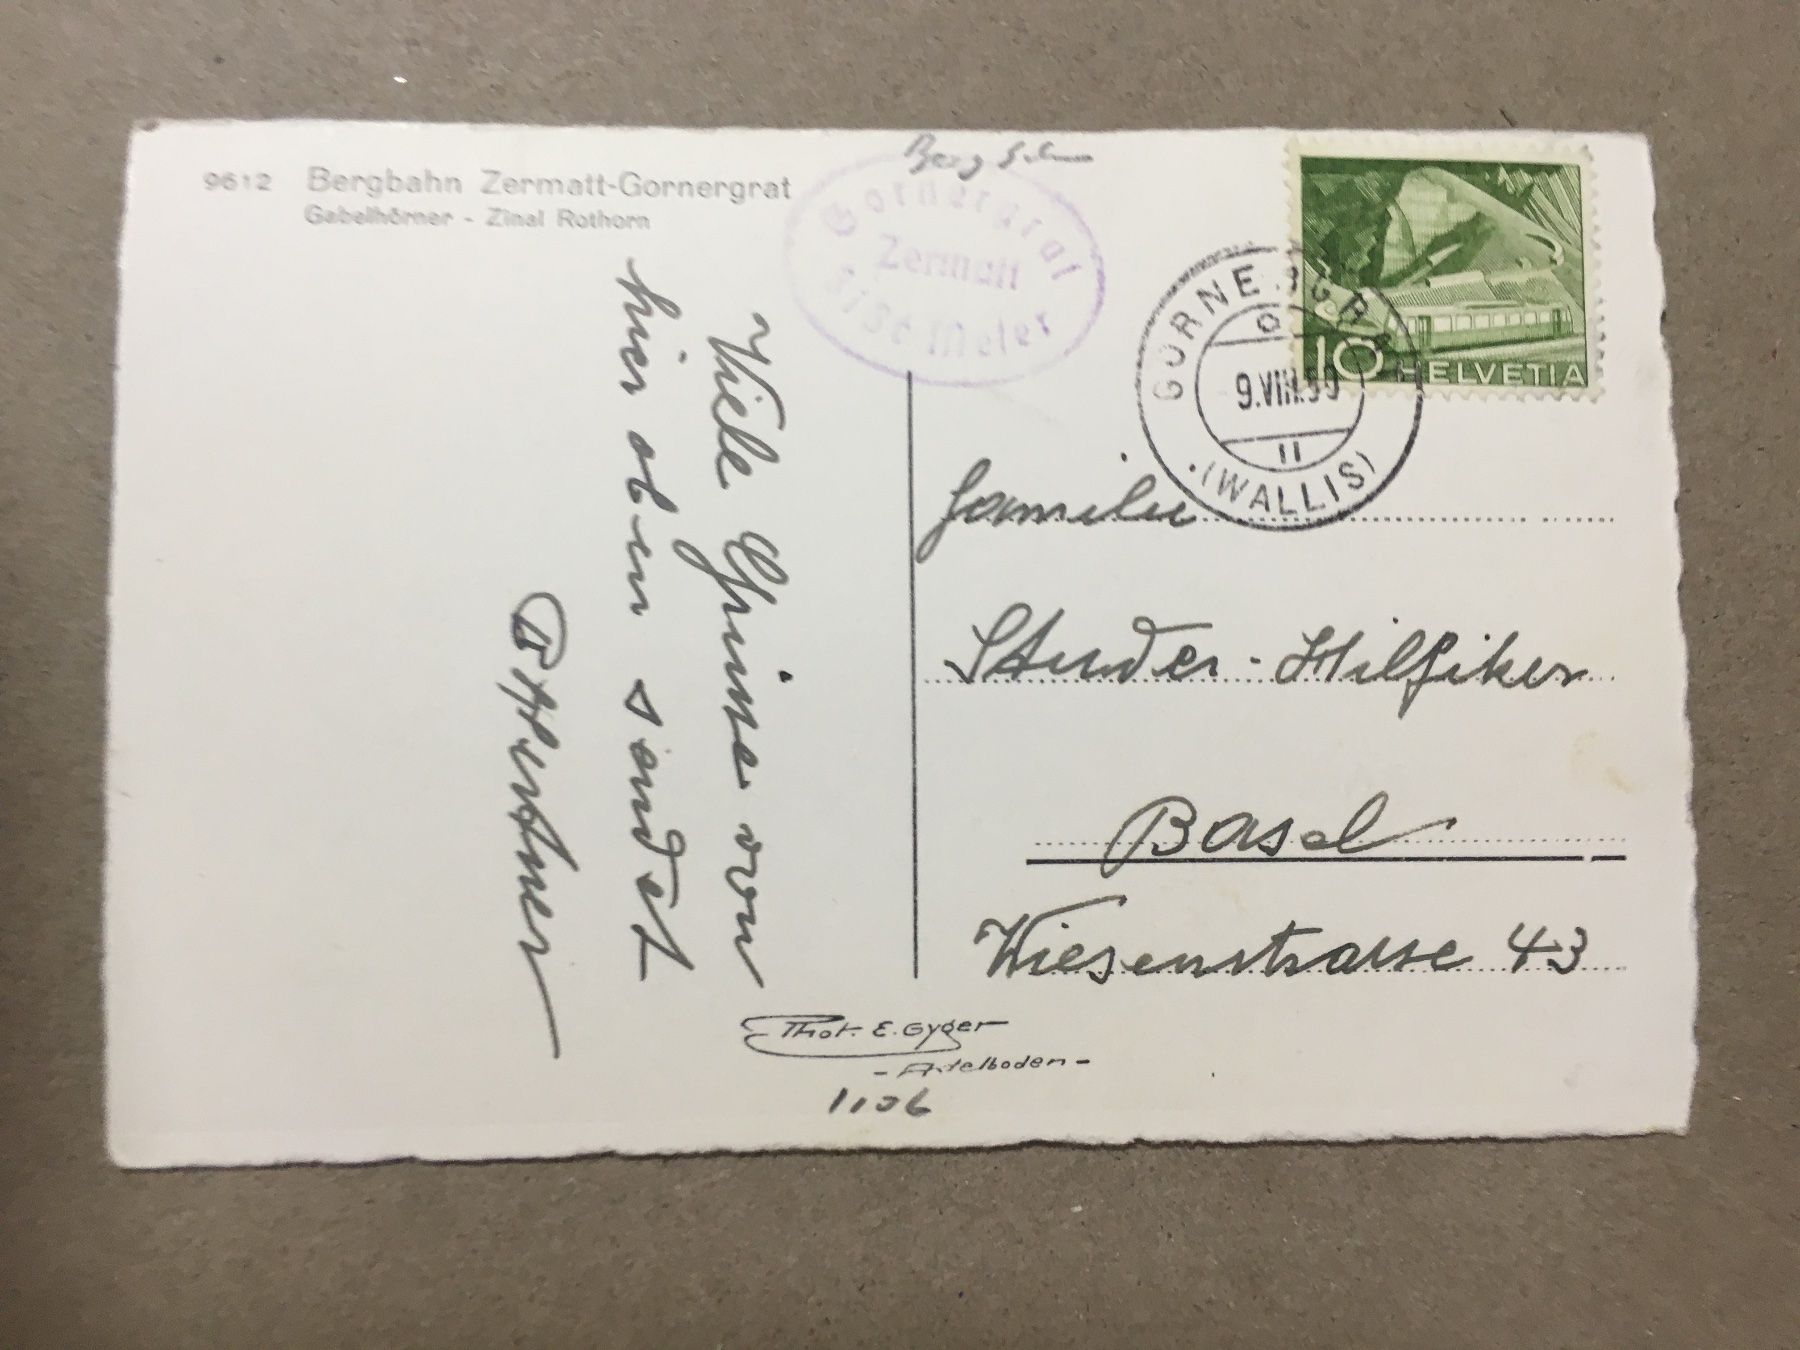 9612 Bergbahn Zermatt-Gornergrat
Gabelhörner - Zinal Rothorn
Gornergrat
Zermatt
3136 Meter
10 HELVETIA
GORNERGRAT
9.VIII.50
(WALLIS)
Viele Grüsse von
hier oben sendet
Familie
Studer-Hilfiker
Basel
Wiesenstrasse 43
Phot. E. Gyger
- Adelboden -
1106